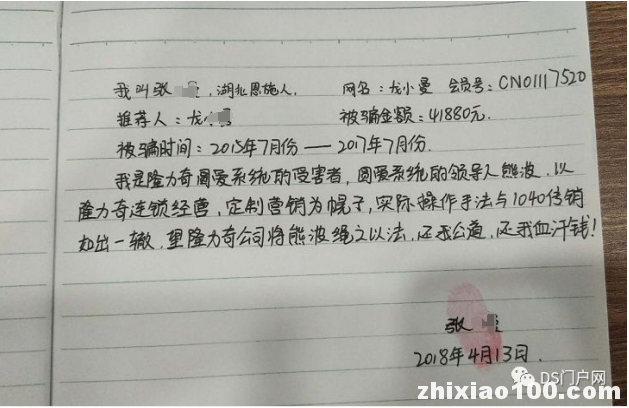 我叫张，湖北恩施人， 网名：龙小曼 会员号：CN01117520
推荐人：龙小 被骗金额：41880元.
被骗时间：2015年7月份——2017年7月份.
我是隆力奇圆爱系统的受害者，圆爱系统的领导人熊波，以
隆力奇连锁经营，定制营销为幌子，实际操作手法与1040传销
如出一辙，望隆力奇公司将熊波绳之以法，还我公道，还我血汗钱！
张
2018年4月13日.
DS门户网
zhixiao100.com